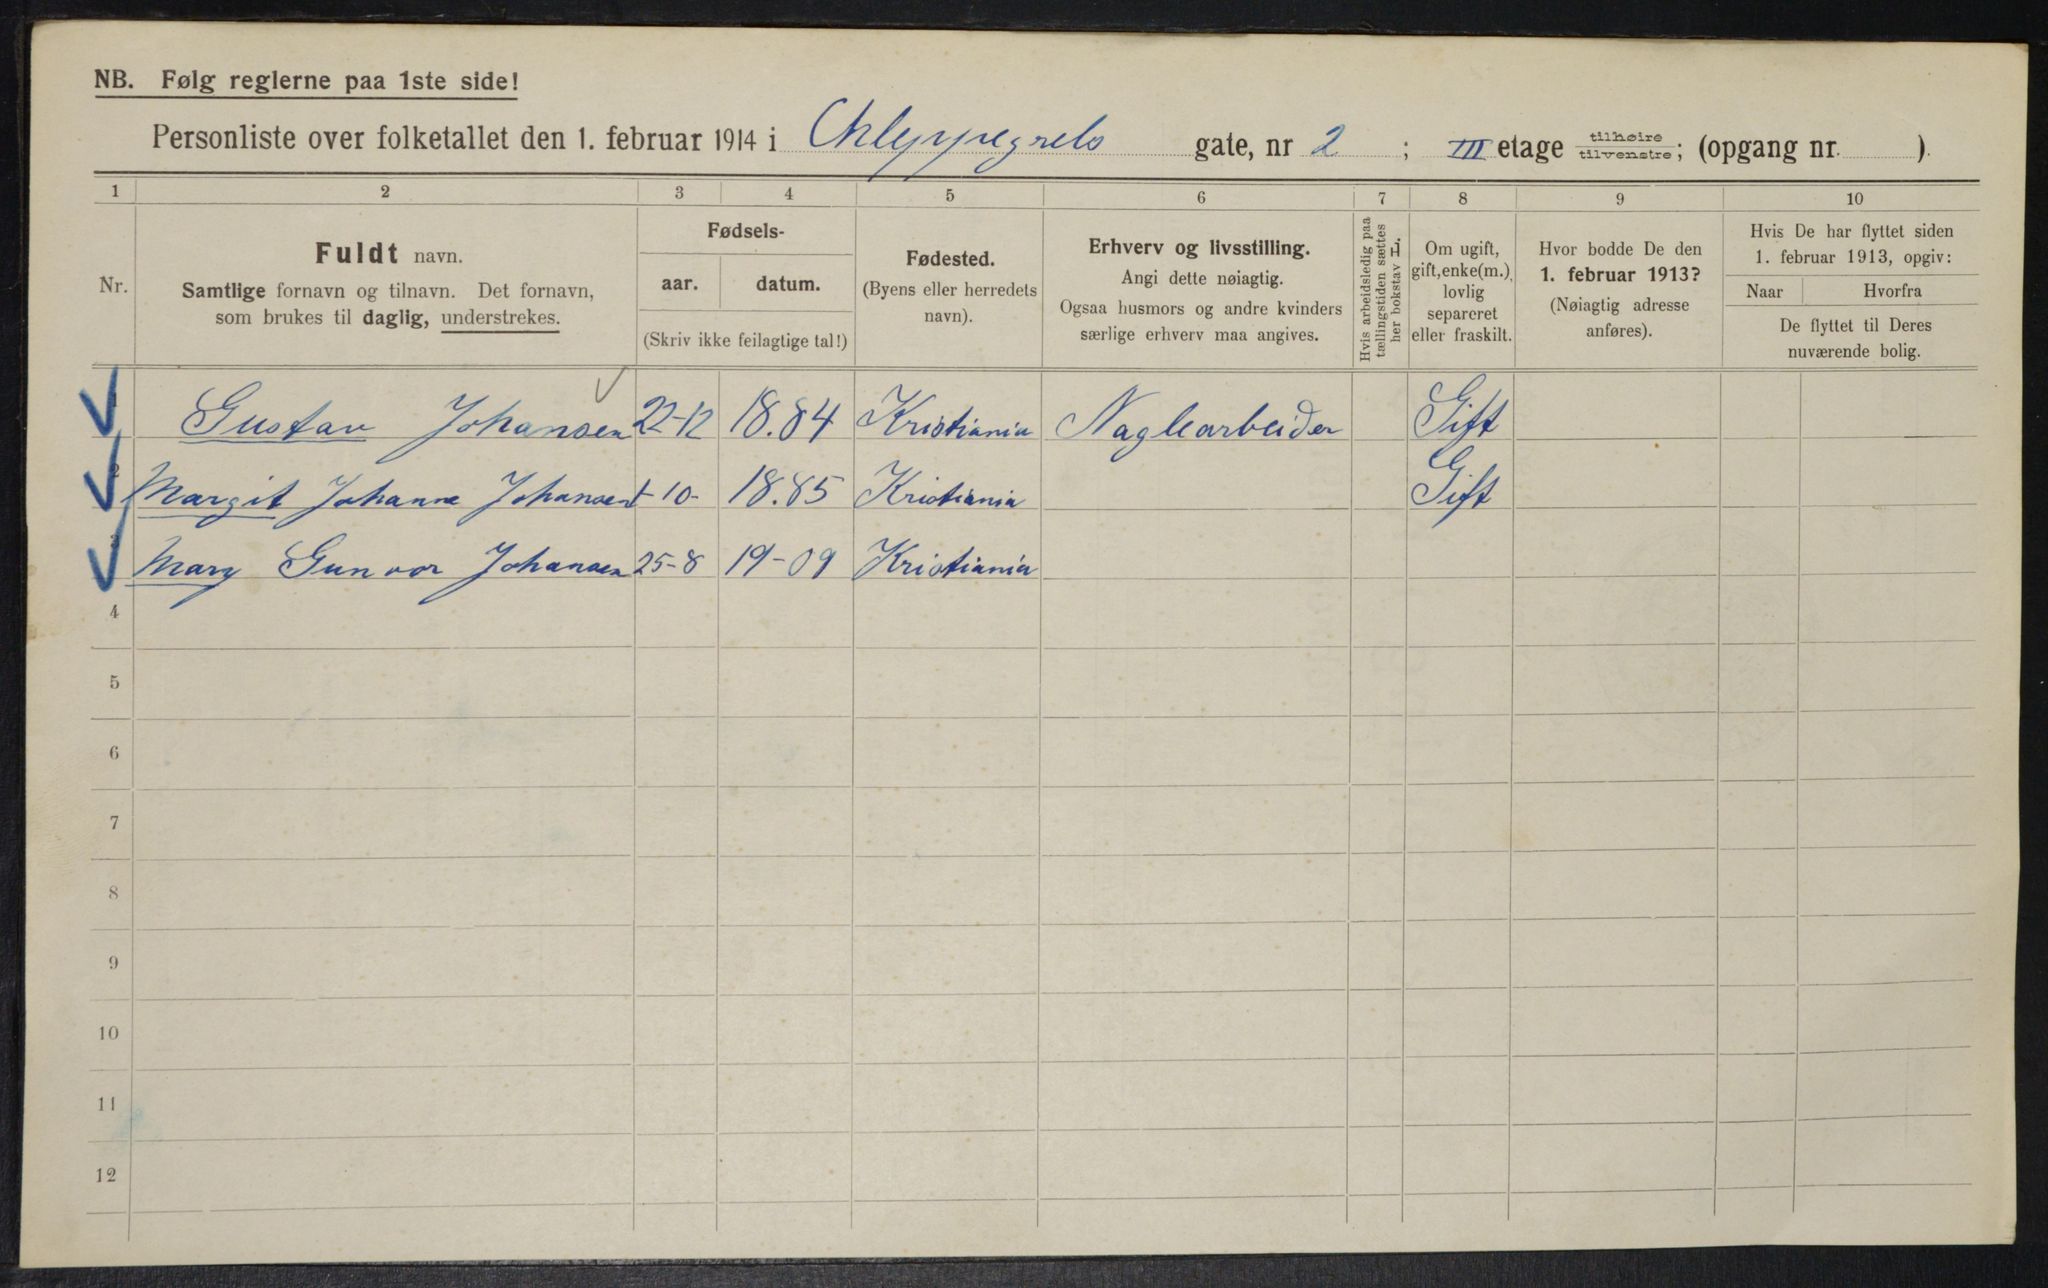 NB. Følg reglerne paa 1ste side!
Personliste over folketallet den 1. februar 1914 i Chleppegrels gate, nr 2; III etage tilhøire tilvenstre; (opgang nr. ).
1 2 3 4 5 6 7 8 9 10
Nr.
Fuldt navn.
Samtlige fornavn og tilnavn. Det fornavn,
som brukes til daglig, understrekes.
Fødsels-
aar. datum.
(Skriv ikke feilagtige tal!)
Fødested.
(Byens eller herredets
navn).
Erhverv og livsstilling.
Angi dette nøiagtig.
Ogsaa husmors og andre kvinders
særlige erhverv maa angives.
Hvis arbeidsledig paa
tællingstiden sættes
her bokstav L.
Om ugift,
gift, enke(m.),
lovlig
separeret
eller fraskilt.
Hvor bodde De den
1. februar 1913?
(Nøiagtig adresse
anføres).
Hvis De har flyttet siden
1. februar 1913, opgiv:
Naar Hvorfra
De flyttet til Deres
nuværende bolig.
1 Gustav Johansen 22-12 18.84 Kristiania Naglearbeider Gift
2 Margit Johanne Johansen 1-10- 18.85 Kristiania Gift
3 Mary Gunvor Johansen 25-8 19-09 Kristiania
4
5
6
7
8
9
10
11
12